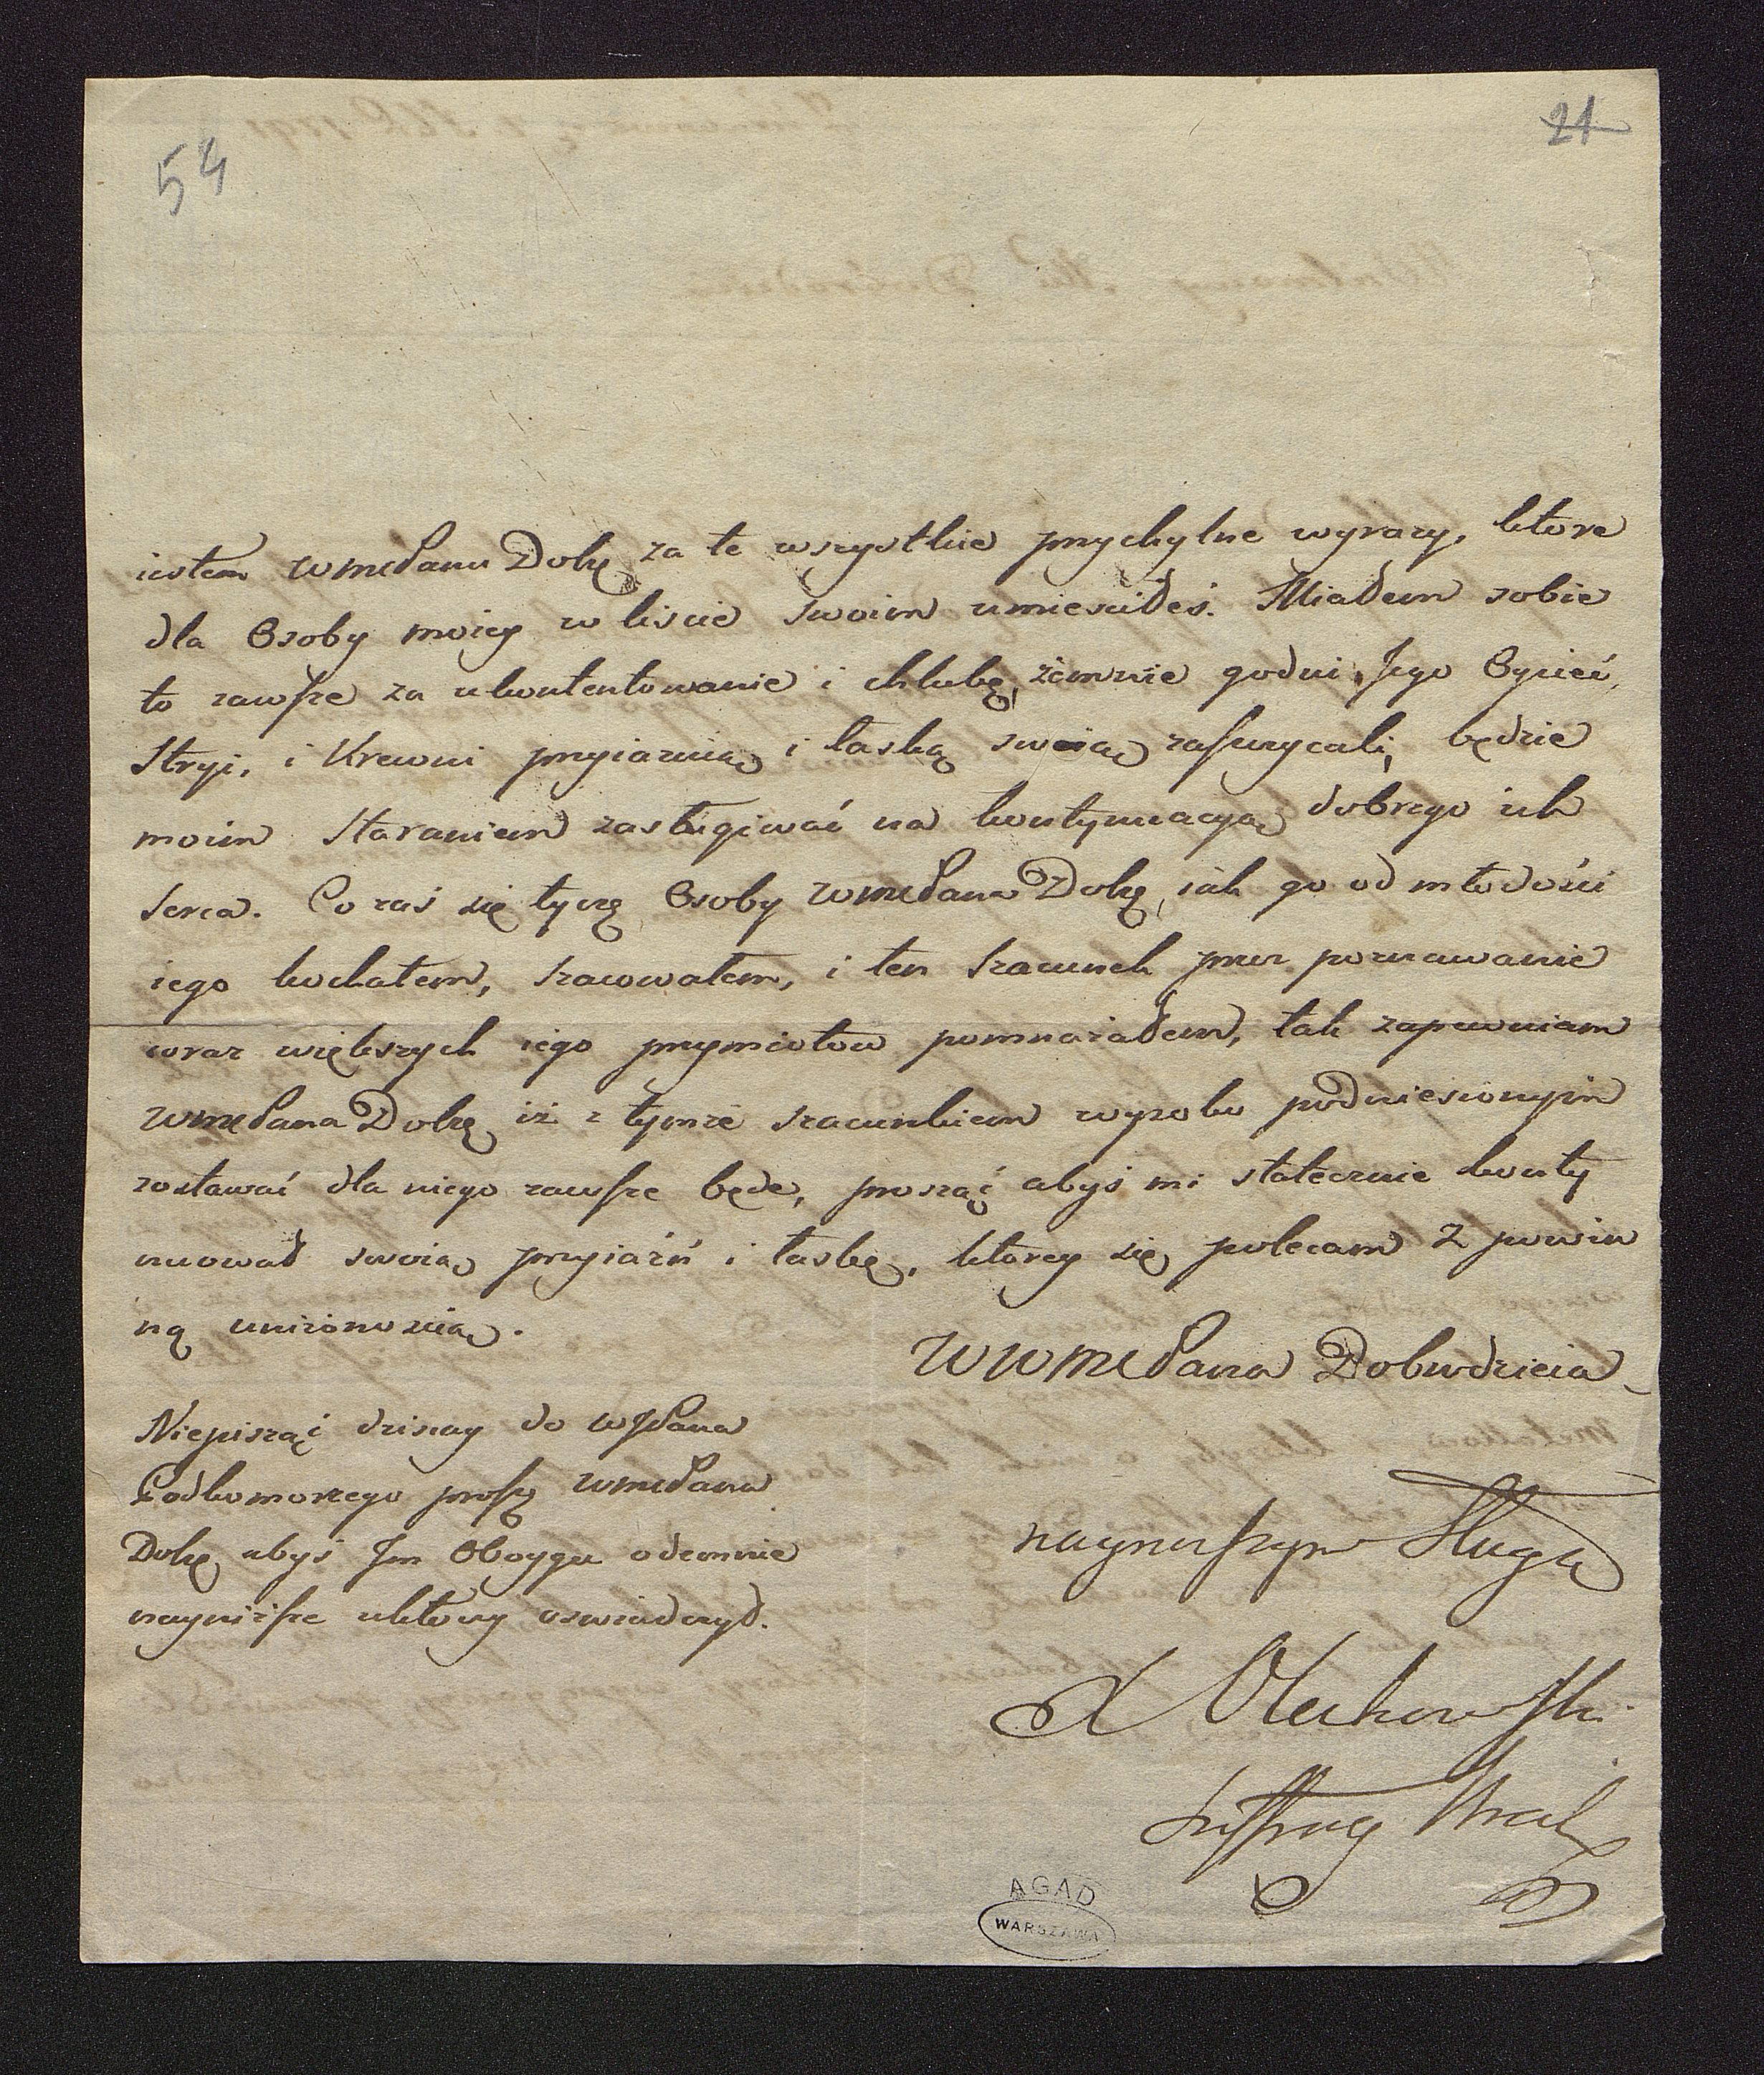 54
21
iestem WmcPanu Dobę za te wszystkie przychylne wyrazy, ktore
dla Osoby moiey w liscie swoim umiesciłeś. Miałem sobie
to zawsze za ukontentowanie i chlubę, żemnie godni Jego Oyciec,
Stryi, i Krewni przyiaznią i łaską swoią zaszczycali, będzie
moim staraniem zasługiwać na kontynuacyą dobrego ich
serca. Co zaś się tyczę Osoby WmcPana Dobę, iak go od młodości
iego kochałem, szacowałem, i ten szacunek przez poznawanie
coraz większych iego przymiotow pomnażałem, tak zapewniam
WmcPana Dobę iż z tymże szacunkiem wysoko podniesionym
zostawać dla niego zawsze będę, prosząc abyś mi statecznie konty
nuował swoią przyiaźń i łaskę, ktorey się polecam z powin
ną uniżonoscią.
WWmcPana Dobrodzieia
Niepisząc dzisiay do WJPana
Podkomorzego proszę WmcPana
Dobę abyś Jm Oboyga odemnie
nayniższe ukłony oswiadczył.
nayniższym Sługą
X Olechowski
Suffrag Krak
AGAD
WARSZAWA